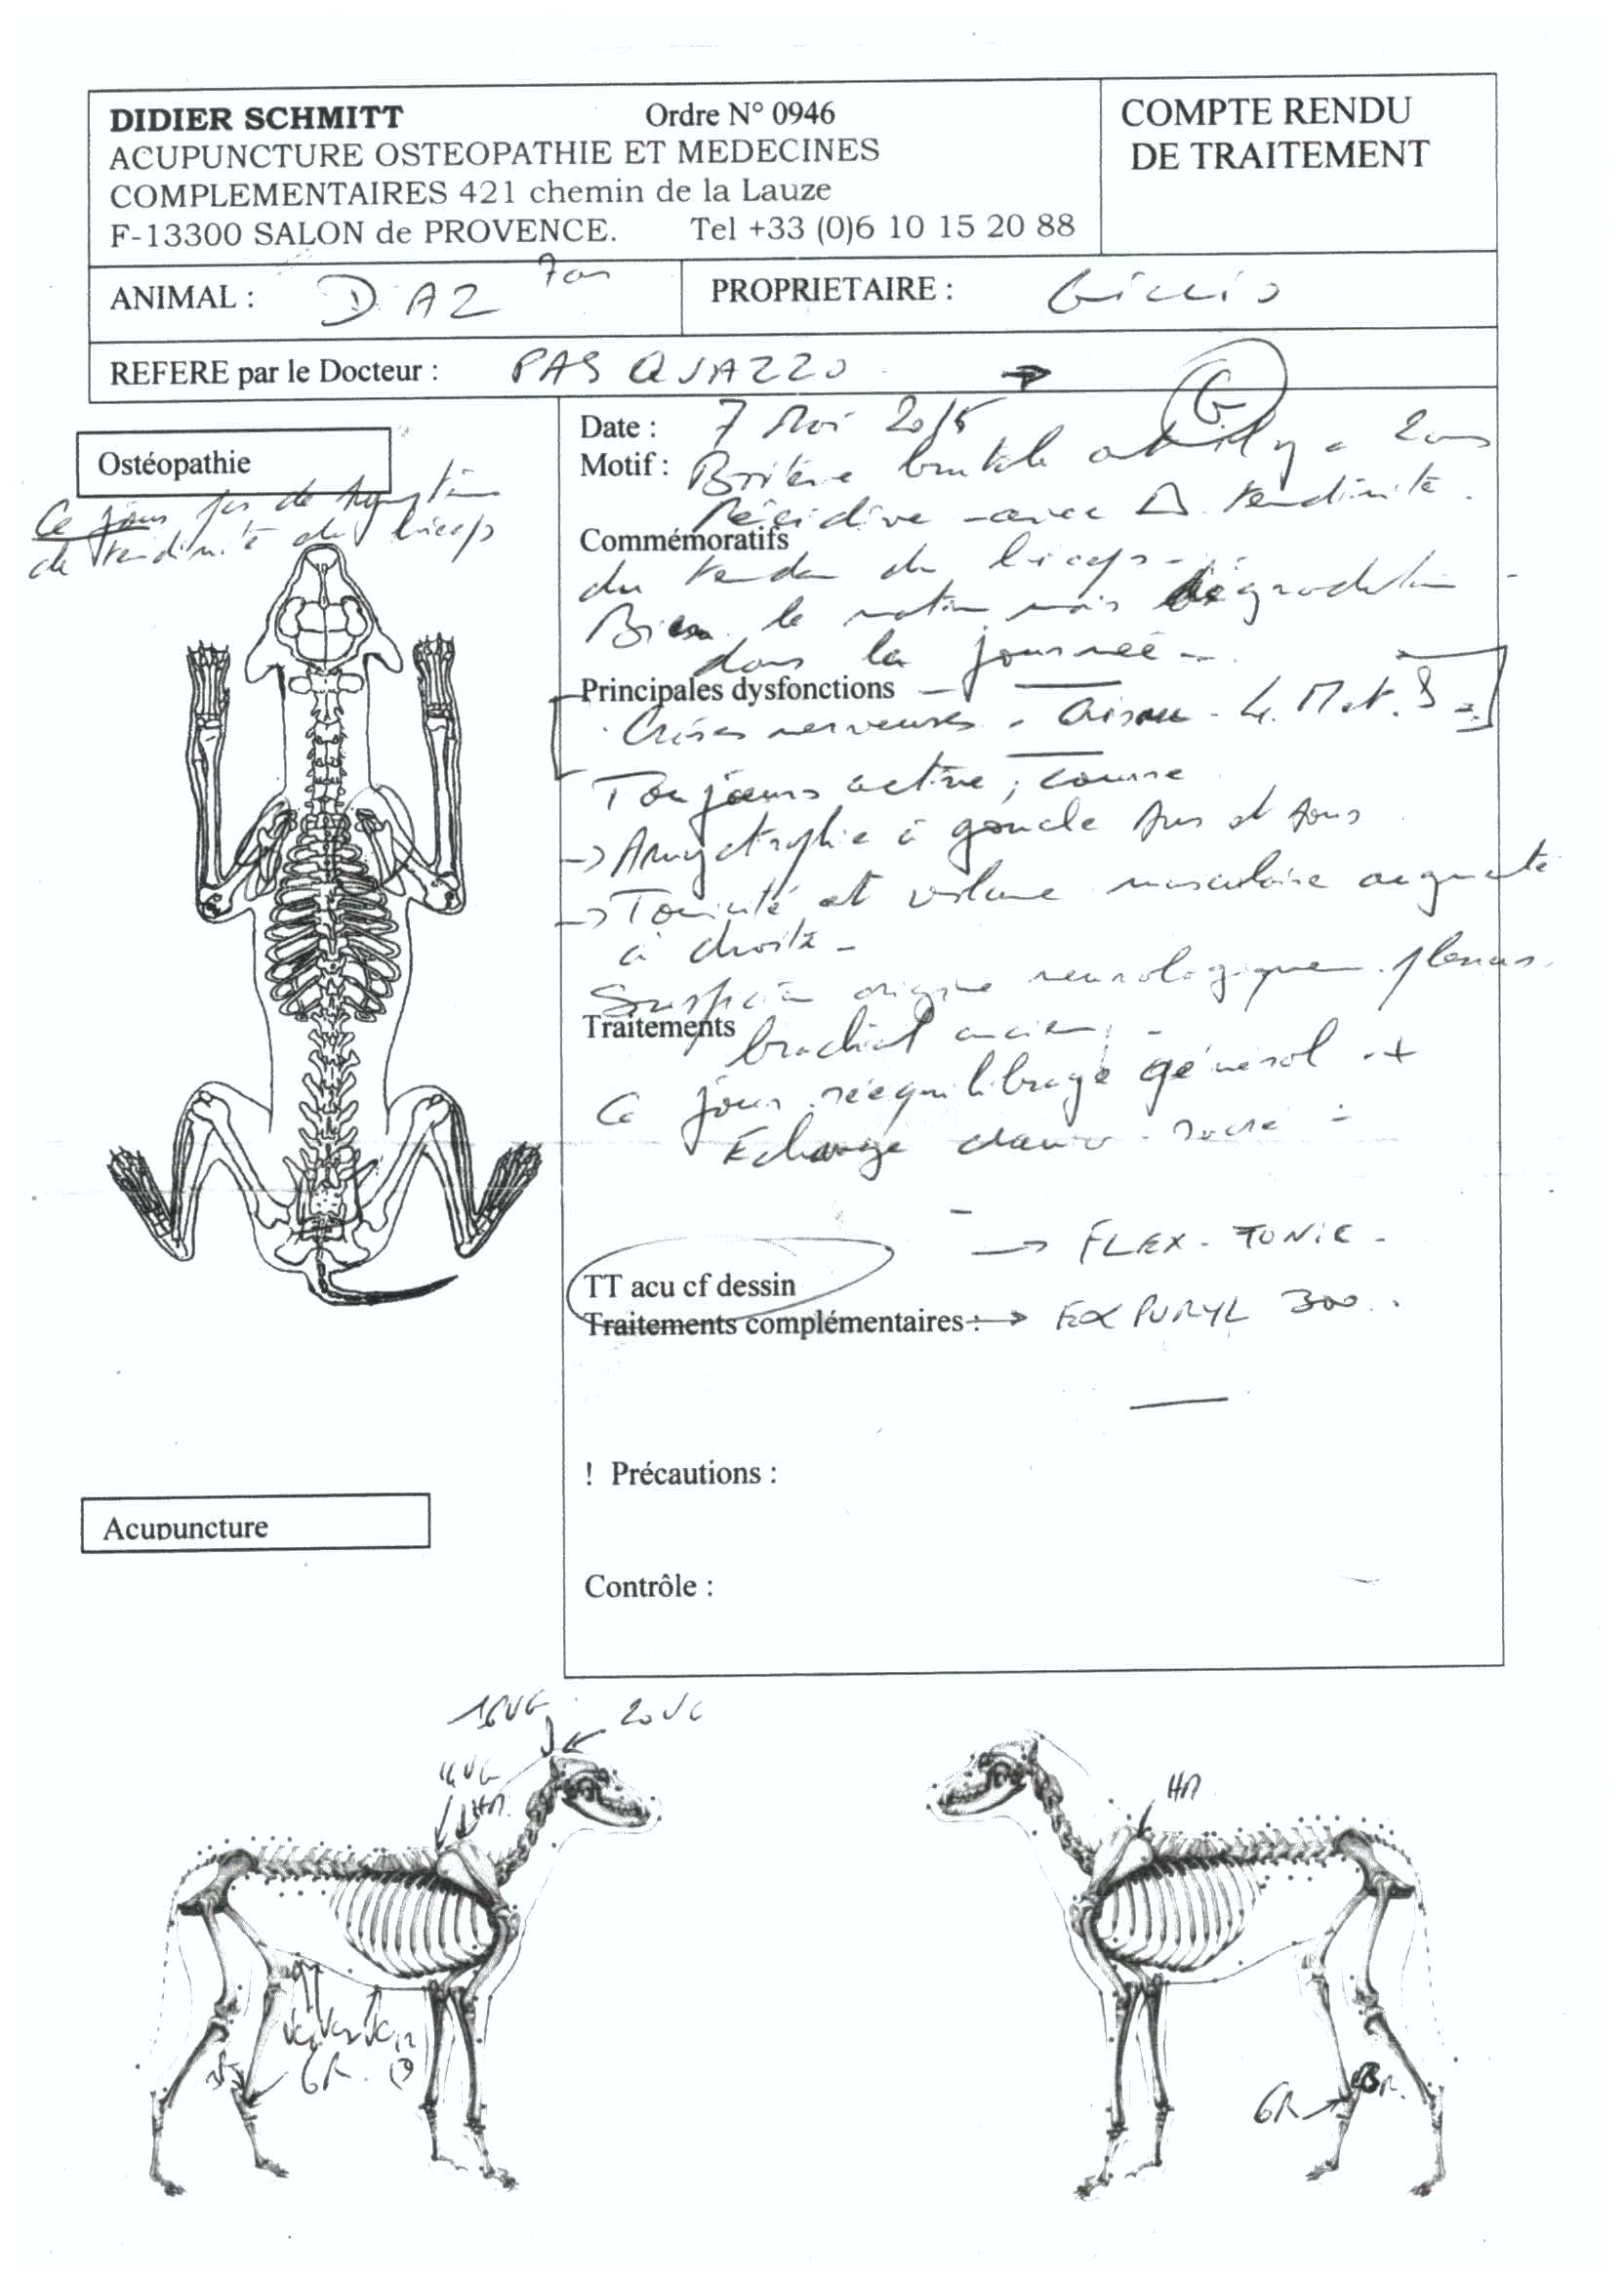 DIDIER SCHMITT Ordre N° 0946
ACUPUNCTURE OSTEOPATHIE ET MEDECINES
COMPLEMENTAIRES 421 chemin de la Lauze
F-13300 SALON de PROVENCE. Tel +33 (0)6 10 15 20 88
COMPTE RENDU
DE TRAITEMENT
ANIMAL : DAZ 7 ans
PROPRIETAIRE :
REFERE par le Docteur : PASQUAZZO →
G
Ostéopathie
Ce jour pas de symptôme
de tendinite du biceps
Date : 7 Mai 2015
Motif : Boiterie brutale il y a 2 ans
Récidive - avec Δ tendinite.
Commémoratifs
du tendon du biceps -
Bien le matin mais dégradation
dans la journée -
Principales dysfonctions
Crises nerveuses -
Toujours active ; course
→ Amyotrophie à gauche sus et sous
→ Tonicité et volume musculaire augmenté
à droite -
Suspicion origine neurologique plexus
Traitements
brachial ancien -
Ce jour rééquilibrage général +
Echange
→ FLEX-TONIC -
TT acu cf dessin
Traitements complémentaires : → EXPURYL 300
! Précautions :
Acupuncture
Contrôle :
16VG 20VG
14VG
HM
HM
VC12
6R
6R